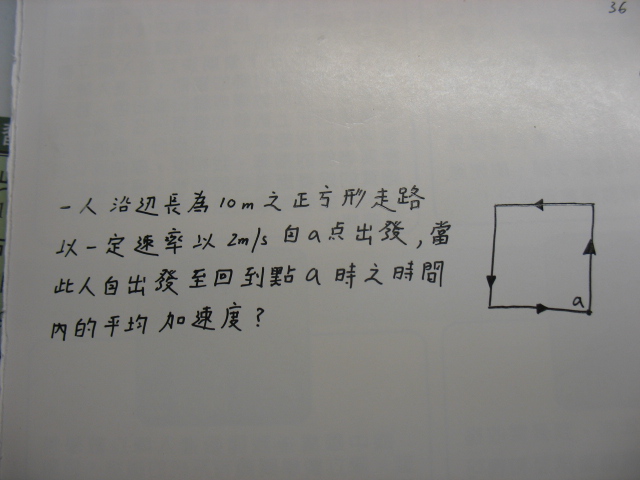 36
一人沿辺長為10m之正方形走路
以一定速率以2m/s自a点出發,當
此人自出發至回到點a時之時間
內的平均加速度?
a